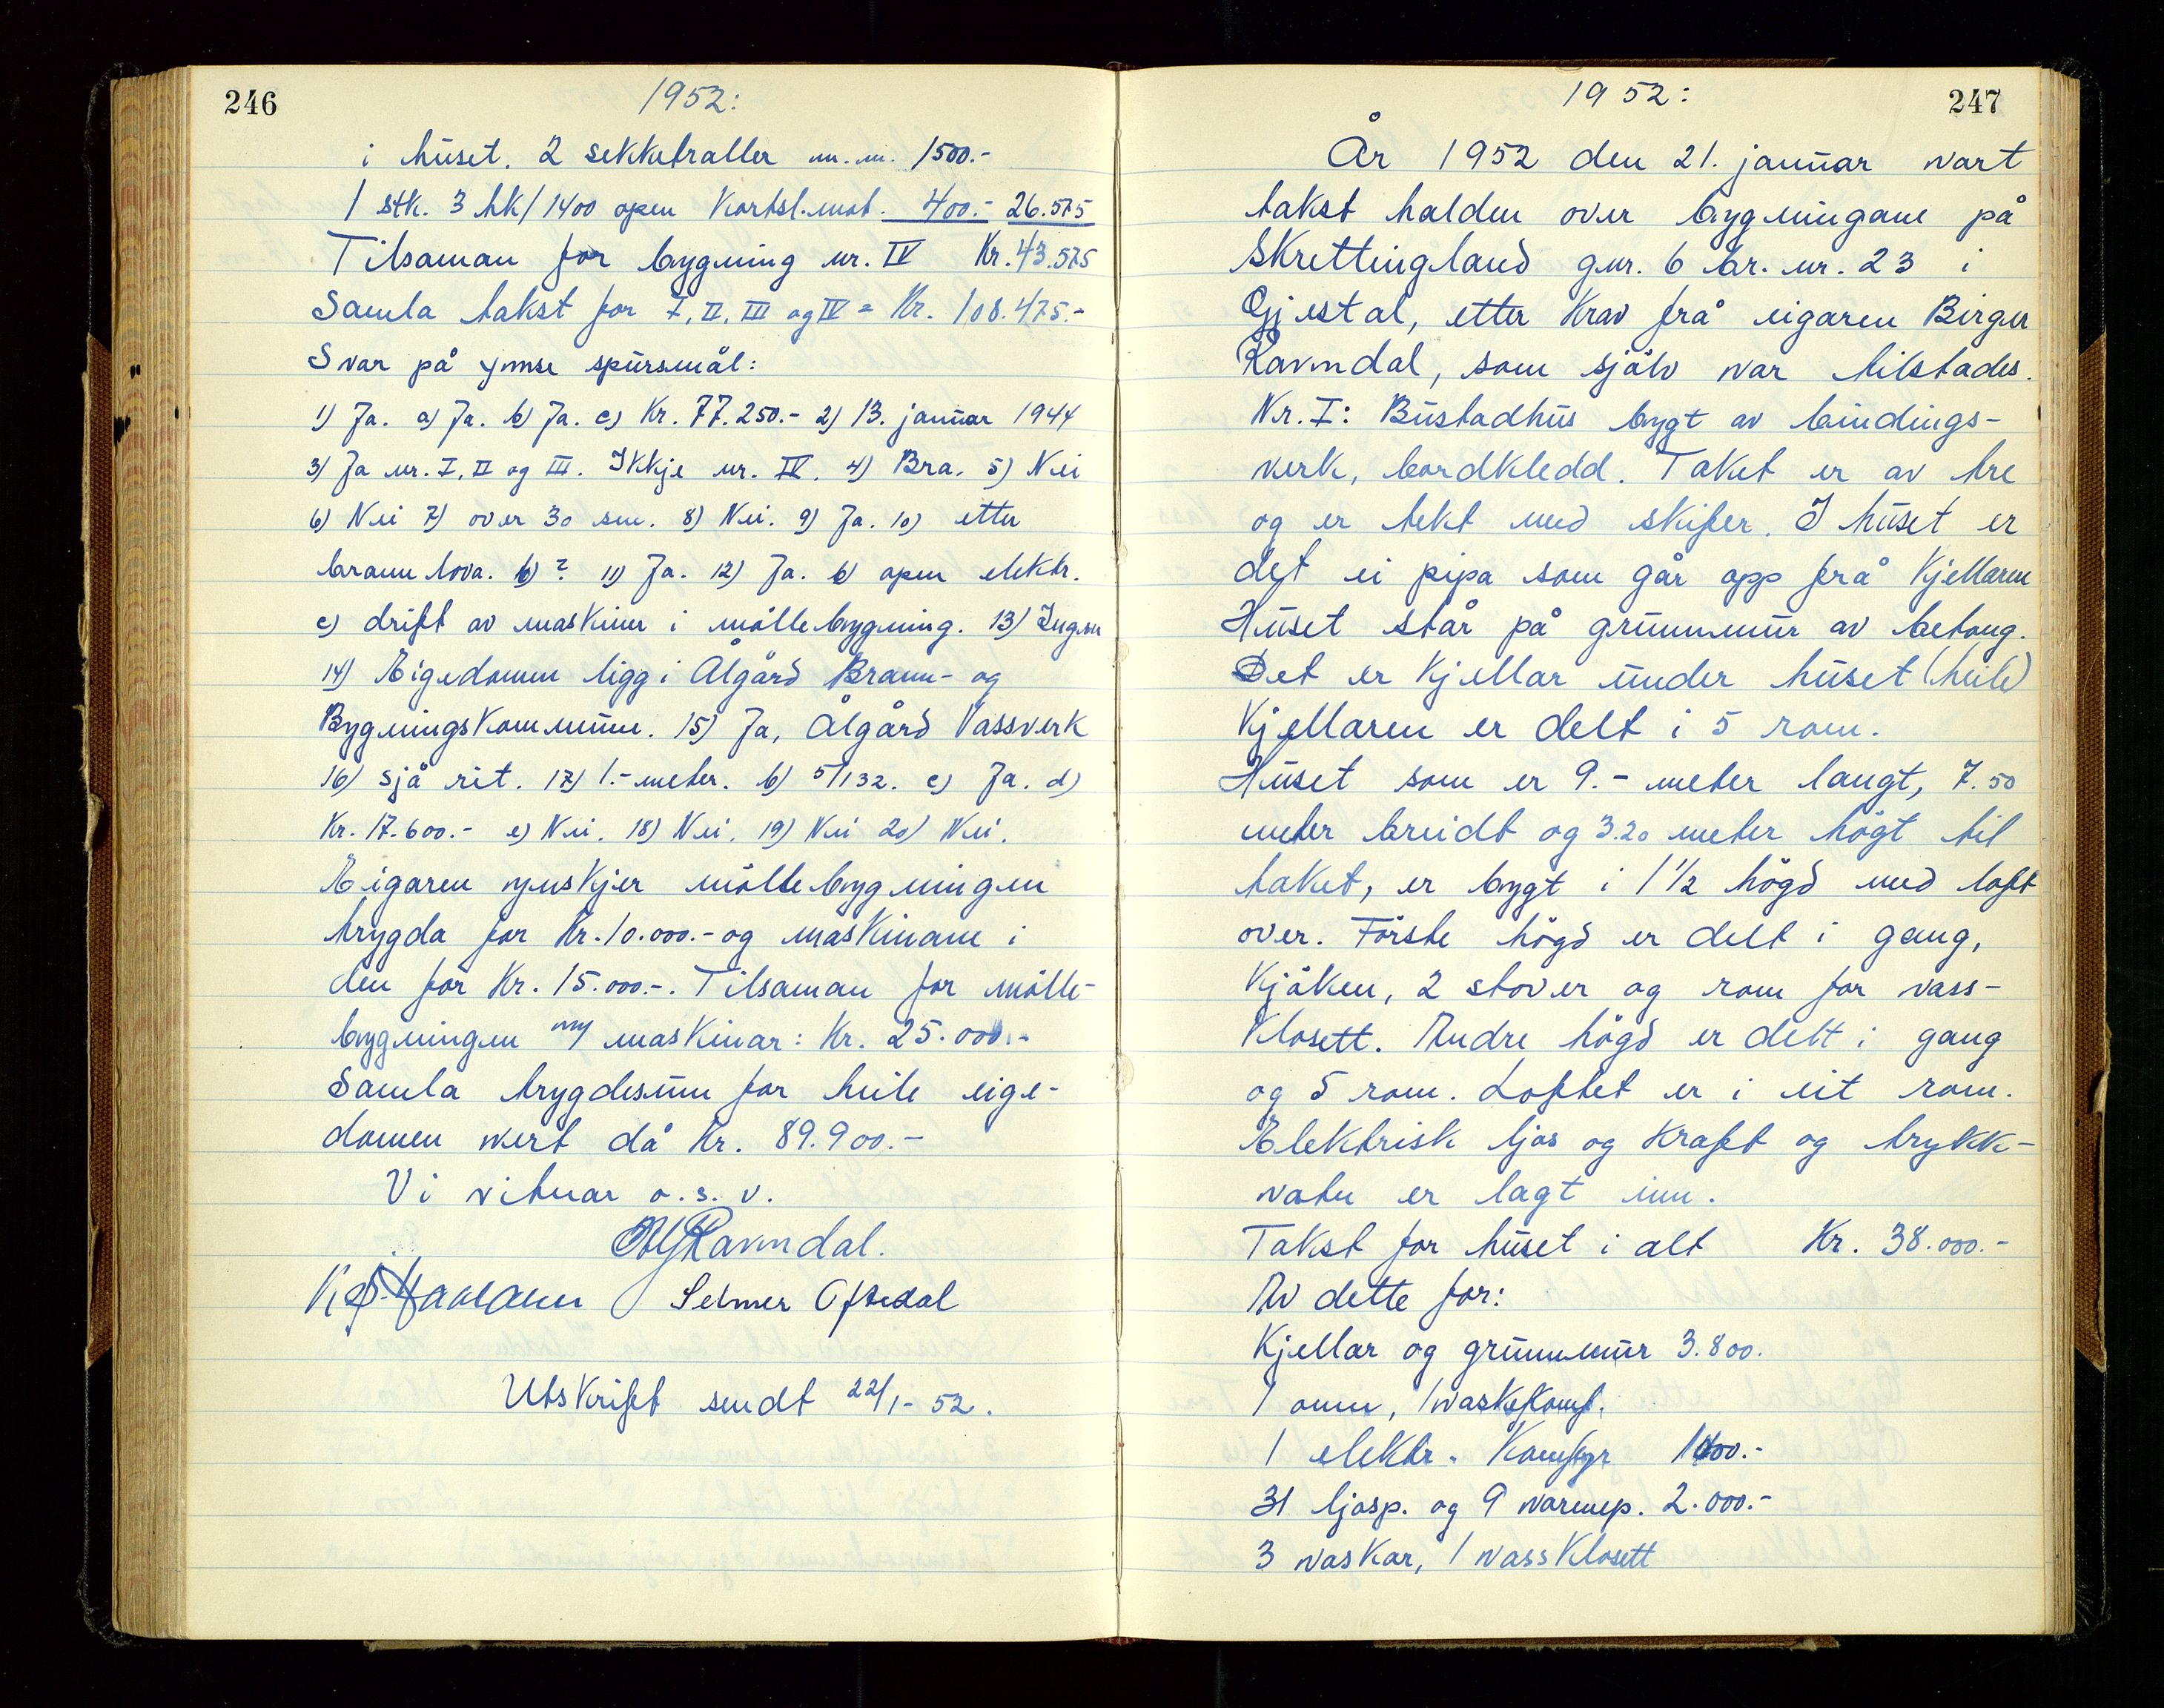 246
1952:
i huset. 2 sekketraller m.m. 1500.-
1 stk. 3 hk/1400 open kortsl.mot. 400.- 26.575
Tilsaman for bygning nr. IV Kr. 43.575
Samla takst for I, II, III og IV = Kr. 108.475.-
Svar på ymse spursmål:
1) Ja. a) Ja. b) Ja. c) Kr. 77.250.- 2) 13. januar 1944
3) Ja nr. I, II og III. Ikkje nr. IV. 4) Bra. 5) Nei
6) Nei 7) over 30 sm. 8) Nei. 9) Ja. 10) etter
brannlova. b) ? 11) Ja. 12) Ja. b) open elektr.
c) drift av maskinar i møllebygning. 13) Ingen
14) Eigedomen ligg i Ålgård Brann- og
Bygningskommune. 15) Ja, Ålgård Vassverk
16) sjå rit. 17) 1.- meter. b) 5/132. c) Ja. d)
Kr. 17.600.- e) Nei. 18) Nei. 19) Nei 20) Nei.
Eigaren ynskjer møllebygningen
trygda for Kr. 10.000.- og maskinane i
den for Kr. 15.000.-. Tilsaman for mølle-
bygningen m/ maskinar: Kr. 25.000.-
Samla trygdesum for heile eige-
domen vert då Kr. 89.900.-
Vi vitnar o.s.v.
Ravndal.
Selmer Oftedal
Utskrift sendt 22/1-52.
1952:
247
År 1952 den 21. januar vart
takst halden over bygningane på
Skrettingland gnr. 6 br. nr. 23 i
Gjestal, etter krav frå eigaren Birger
Ravndal, som sjølv var tilstades.
Nr. I: Bustadhus bygt av bindings-
verk, bordkledd. Taket er av tre
og er tekt med skifer. I huset er
det ei pipa som går opp frå kjellaren
Huset står på grunnmur av betong.
Det er kjellar under huset (heile)
Kjellaren er delt i 5 rom.
Huset som er 9.- meter langt, 7.50
meter breidt og 3.20 meter høgt til
taket, er bygt i 1 1/2 høgd med loft
over. Første høgd er delt i gang,
Kjøken, 2 stover og rom for vass-
klosett. Andre høgd er delt i gang
og 5 rom. Loftet er i eit rom.
Elektrisk ljos og kraft og trykk-
vatn er lagt inn.
Takst for huset i alt Kr. 38.000.-
Av dette for:
Kjellar og grunnmur 3.800.
1 omn, 1 vaskekomf.
1 elektr. komfyr
31 ljosp. og 9 varmep. 2.000.-
3 vaskar, 1 vassklosett